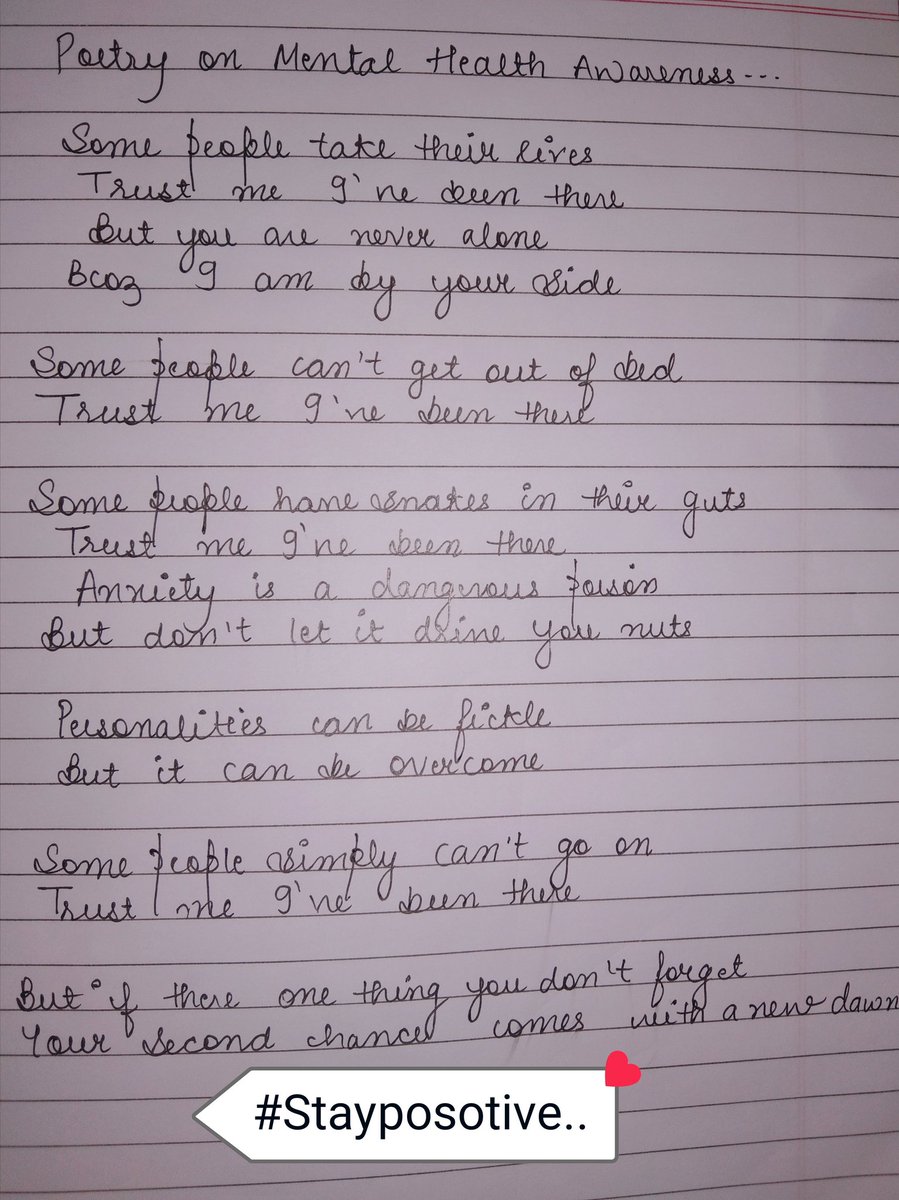 Poetry on Mental Health Awareness...
Some people take their lives
Trust me I've been there
But you are never alone
Bcoz I am by your side
Some people can't get out of bed
Trust me I've been there
Some people have snakes in their guts
Trust me I've been there
Anxiety is a dangerous poison
But don't let it drive you nuts
Personalities can be fickle
But it can be overcome
Some people simply can't go on
Trust me I've been there
But if there one thing you don't forget
Your second chance comes with a new dawn
#Stayposotive..